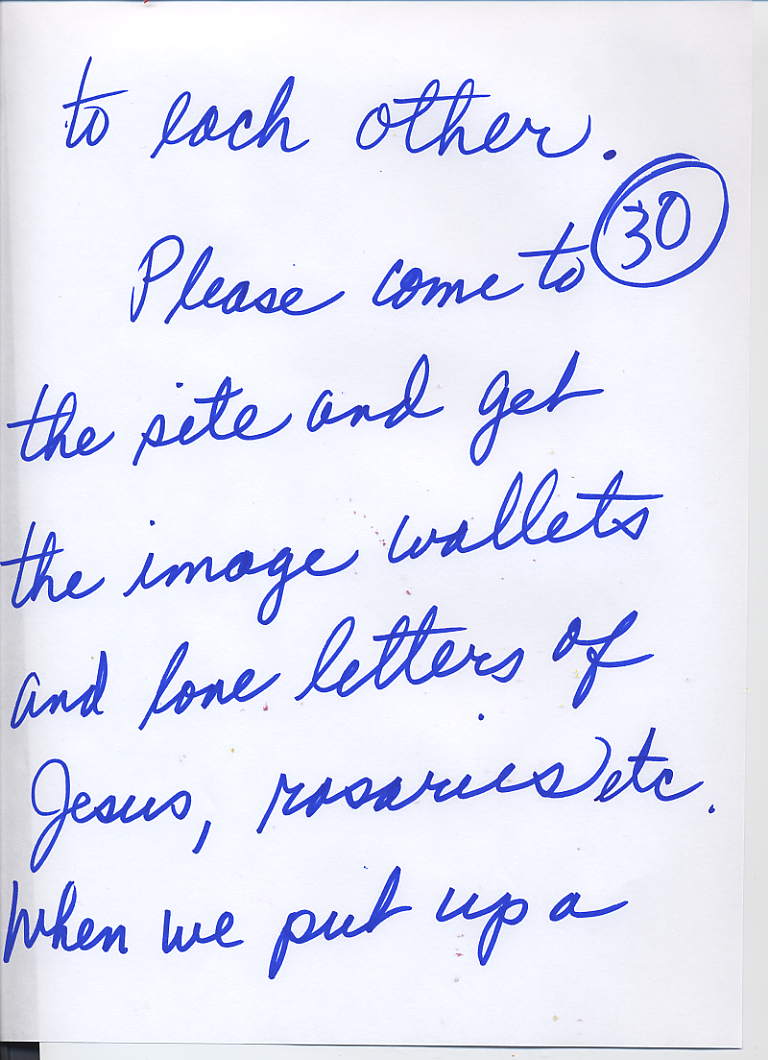 to each other.
30
Please come to
the site and get
the image wallets
and love letters of
Jesus, rosaries etc.
When we put up a